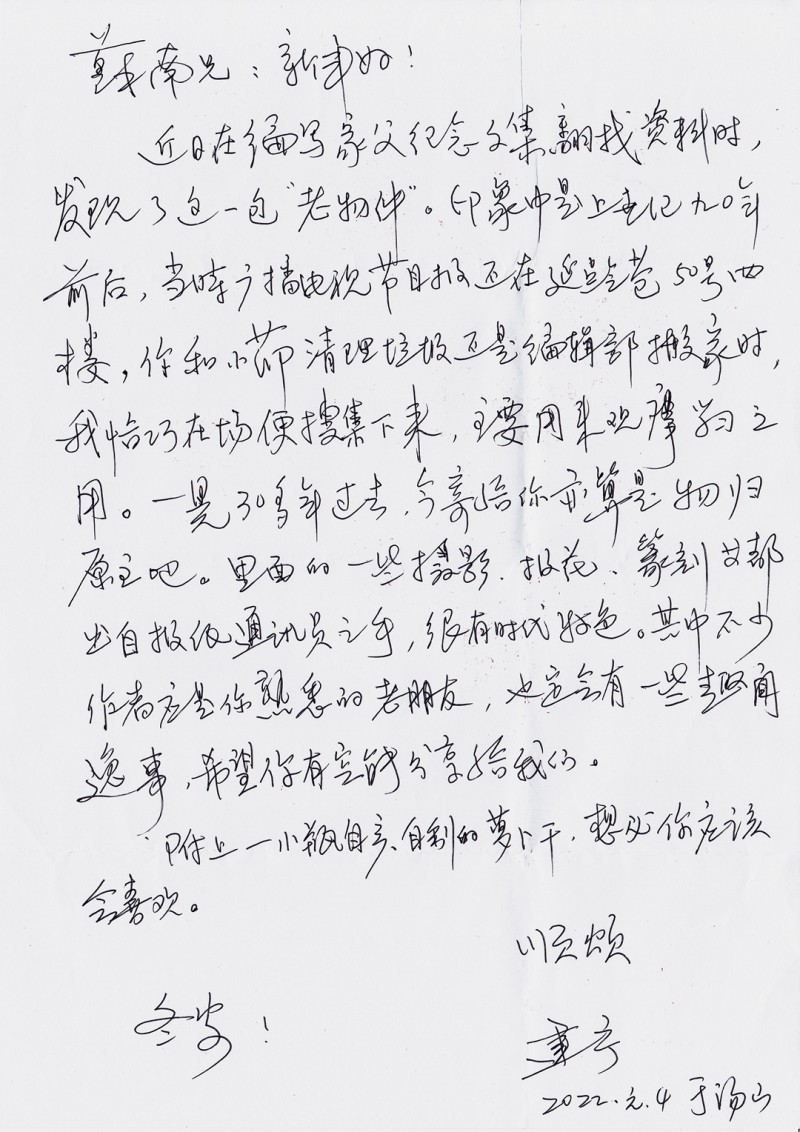 南兄：新年好！
近日在编写家父纪念文集翻找资料时，
发现了这一包“老物件”。印象中是上世纪九〇年
前后，当时广播电视节目报还在延龄巷50号四
楼，你和小节清理垃圾还是编辑部搬家时，
我恰巧在场便搜集下来，主要用来观摩学习之
用。一晃30多年过去，今寄给你亦算是物归
原主吧。里面的一些摄影、报花、篆刻等都
出自报纸通讯员之手，很有时代特色。其中不少
作者应是你熟悉的老朋友，也定会有一些趣闻
逸事，希望你有空能分享给我们。
附上一小瓶自产、自制的萝卜干，想必你应该
会喜欢。
顺颂
冬安！
建宁
2022.元.4 于汤山